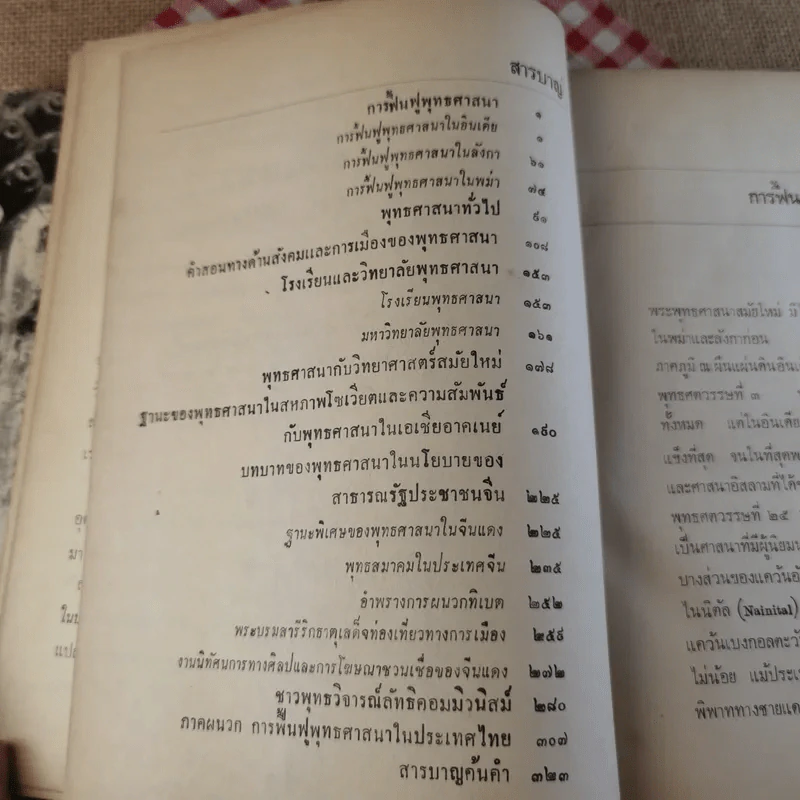 สารบาญ
การฟื้นฟูพุทธศาสนา ๑
การฟื้นฟูพุทธศาสนาในอินเดีย ๑
การฟื้นฟูพุทธศาสนาในลังกา ๖๐
การฟื้นฟูพุทธศาสนาในพม่า ๗๔
พุทธศาสนาทั่วไป ๙๑
คำสอนทางด้านสังคมและการเมืองของพุทธศาสนา ๑๐๘
โรงเรียนและวิทยาลัยพุทธศาสนา ๑๕๓
โรงเรียนพุทธศาสนา ๑๕๓
มหาวิทยาลัยพุทธศาสนา ๑๖๑
พุทธศาสนากับวิทยาศาสตร์สมัยใหม่ ๑๗๘
ฐานะของพุทธศาสนาในสหภาพโซเวียตและความสัมพันธ์
กับพุทธศาสนาในเอเชียอาคเนย์ ๑๙๐
บทบาทของพุทธศาสนาในนโยบายของ
สาธารณรัฐประชาชนจีน ๒๒๕
ฐานะพิเศษของพุทธศาสนาในจีนแดง ๒๒๕
พุทธสมาคมในประเทศจีน ๒๓๕
อำพรางการผนวกทิเบต ๒๕๒
พระบรมสารีริกธาตุเสด็จท่องเที่ยวทางการเมือง ๒๕๙
งานนิทัศนการทางศิลปและการโฆษณาชวนเชื่อของจีนแดง ๒๗๒
ชาวพุทธวิจารณ์ลัทธิคอมมิวนิสม์ ๒๘๐
ภาคผนวก การฟื้นฟูพุทธศาสนาในประเทศไทย ๓๐๗
สารบาญค้นคำ ๓๒๓
การฟื้น
พระพุทธศาสนาสมัยใหม่ มี
ในพม่าและลังกาก่อน
ภาคภูมิ ณ ผืนแผ่นดินอินเ
พุทธศตวรรษที่ ๓
ทั้งหมด แต่ในอินเดีย
แข็งที่สุด จนในที่สุดพ
และศาสนาอิสลามที่ได้
พุทธศตวรรษที่ ๒๕
เป็นศาสนาที่มีผู้นิยม
บางส่วนของแคว้นอั
ในนิตัล (Nainital)
แคว้นเบงกอลตะวั
ไม่น้อย แม้ประเ
พิพาททางชายแด